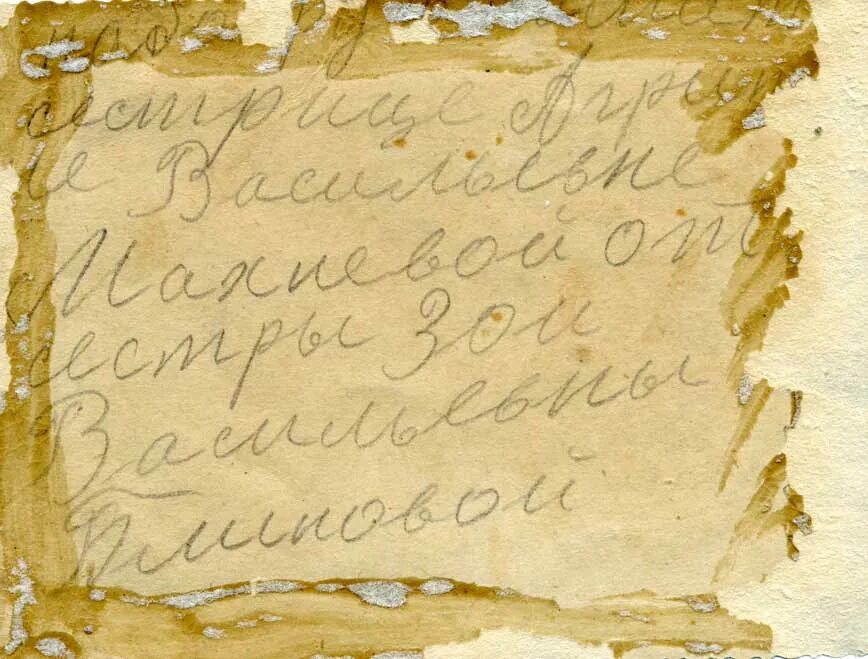 сестрице Агрип
не Васильевне
Махневой от
сестры Зои
Васильевны